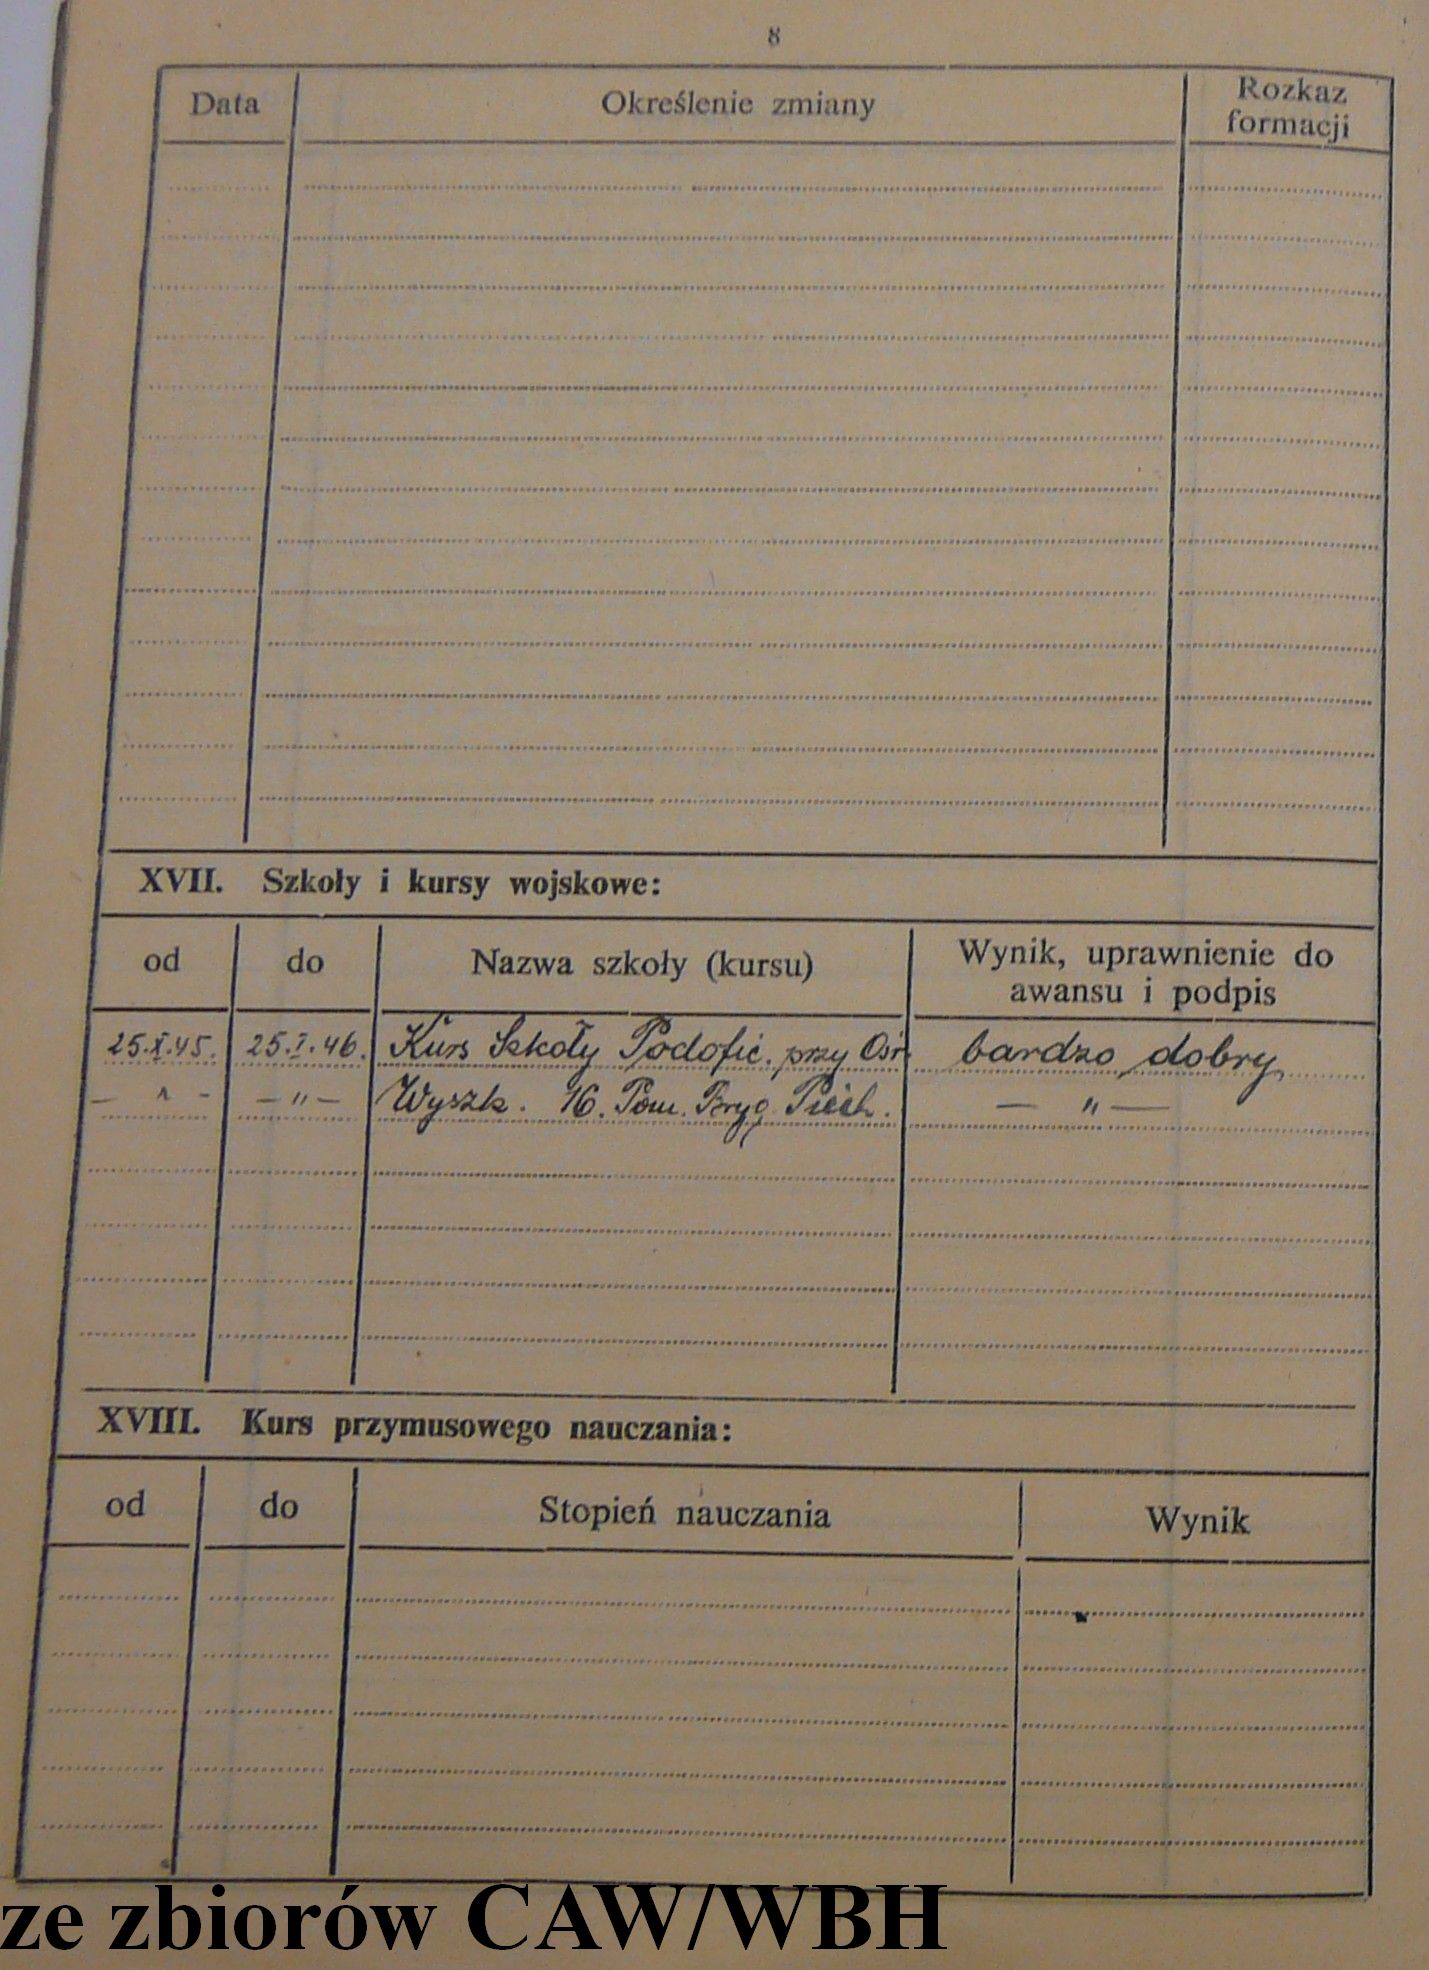 8
Data Określenie zmiany Rozkaz formacji
XVII. Szkoły i kursy wojskowe:
od do Nazwa szkoły (kursu) Wynik, uprawnienie do awansu i podpis
25.X.45. 25.I.46. Kurs Szkoły Podofic. przy Ośr. bardzo dobry
— " - — " — Wyszk. 16. Pom. Bryg. Piech. — " —
XVIII. Kurs przymusowego nauczania:
od do Stopień nauczania Wynik
ze zbiorów CAW/WBH